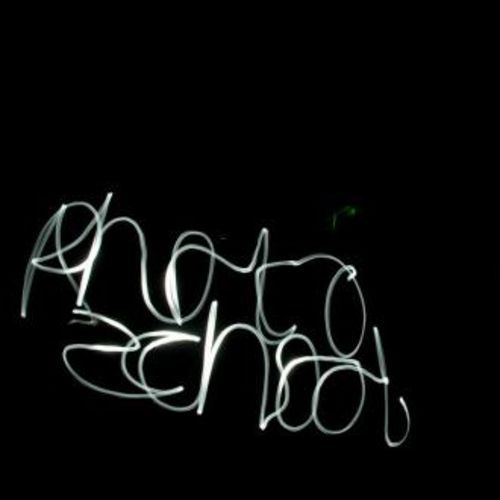 Photo
School